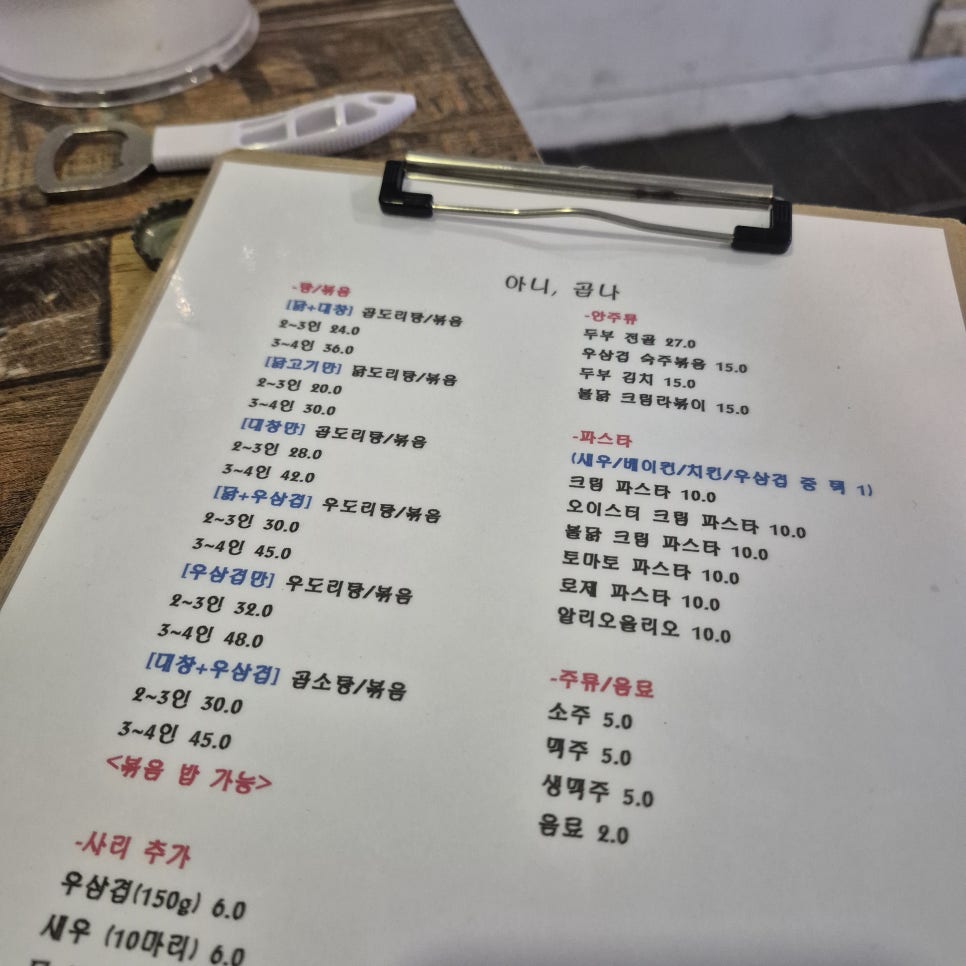 아니, 곱나
-탕/볶음
[닭+대창] 곱도리탕/볶음
2~3인 24.0
3~4인 36.0
[닭고기만] 닭도리탕/볶음
2~3인 20.0
3~4인 30.0
[대창만] 곱도리탕/볶음
2~3인 28.0
3~4인 42.0
[닭+우삼겹] 우도리탕/볶음
2~3인 30.0
3~4인 45.0
[우삼겹만] 우도리탕/볶음
2~3인 32.0
3~4인 48.0
[대창+우삼겹] 곱소탕/볶음
2~3인 30.0
3~4인 45.0
<볶음 밥 가능>
-사리 추가
우삼겹(150g) 6.0
새우 (10마리) 6.0
-안주류
두부 전골 27.0
우삼겹 숙주볶음 15.0
두부 김치 15.0
불닭 크림라볶이 15.0
-파스타
(새우/베이컨/치킨/우삼겹 중 택 1)
크림 파스타 10.0
오이스터 크림 파스타 10.0
불닭 크림 파스타 10.0
토마토 파스타 10.0
로제 파스타 10.0
알리오올리오 10.0
-주류/음료
소주 5.0
맥주 5.0
생맥주 5.0
음료 2.0